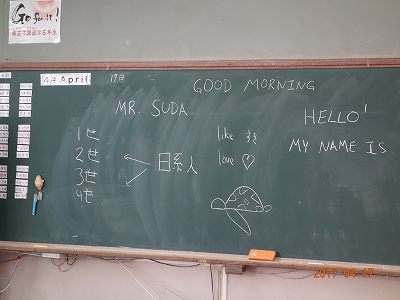 Go for it!
4月 April
17日
GOOD MORNING
MR. SUDA
HELLO!
MY NAME IS
1世
2世
3世
4世
日系人
like すき
love ♡
2017-04-17